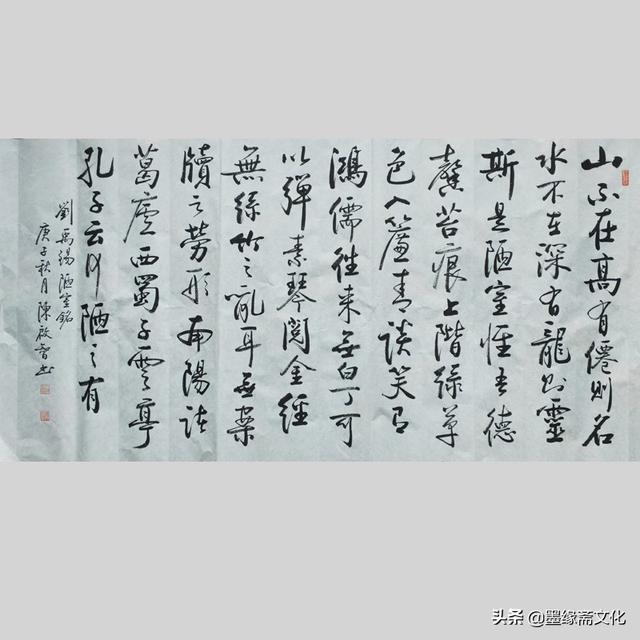 山不在高有僊則名
水不在深有龍則靈
斯是陋室惟吾德
馨苔痕上階綠草
色入簾青談笑有
鴻儒往來無白丁可
以彈素琴閱金經
無絲竹之亂耳無案
牘之勞形南陽諸
葛廬西蜀子雲亭
孔子云何陋之有
劉禹錫陋室銘
庚子秋月陳啟書
头条 @墨缘斋文化